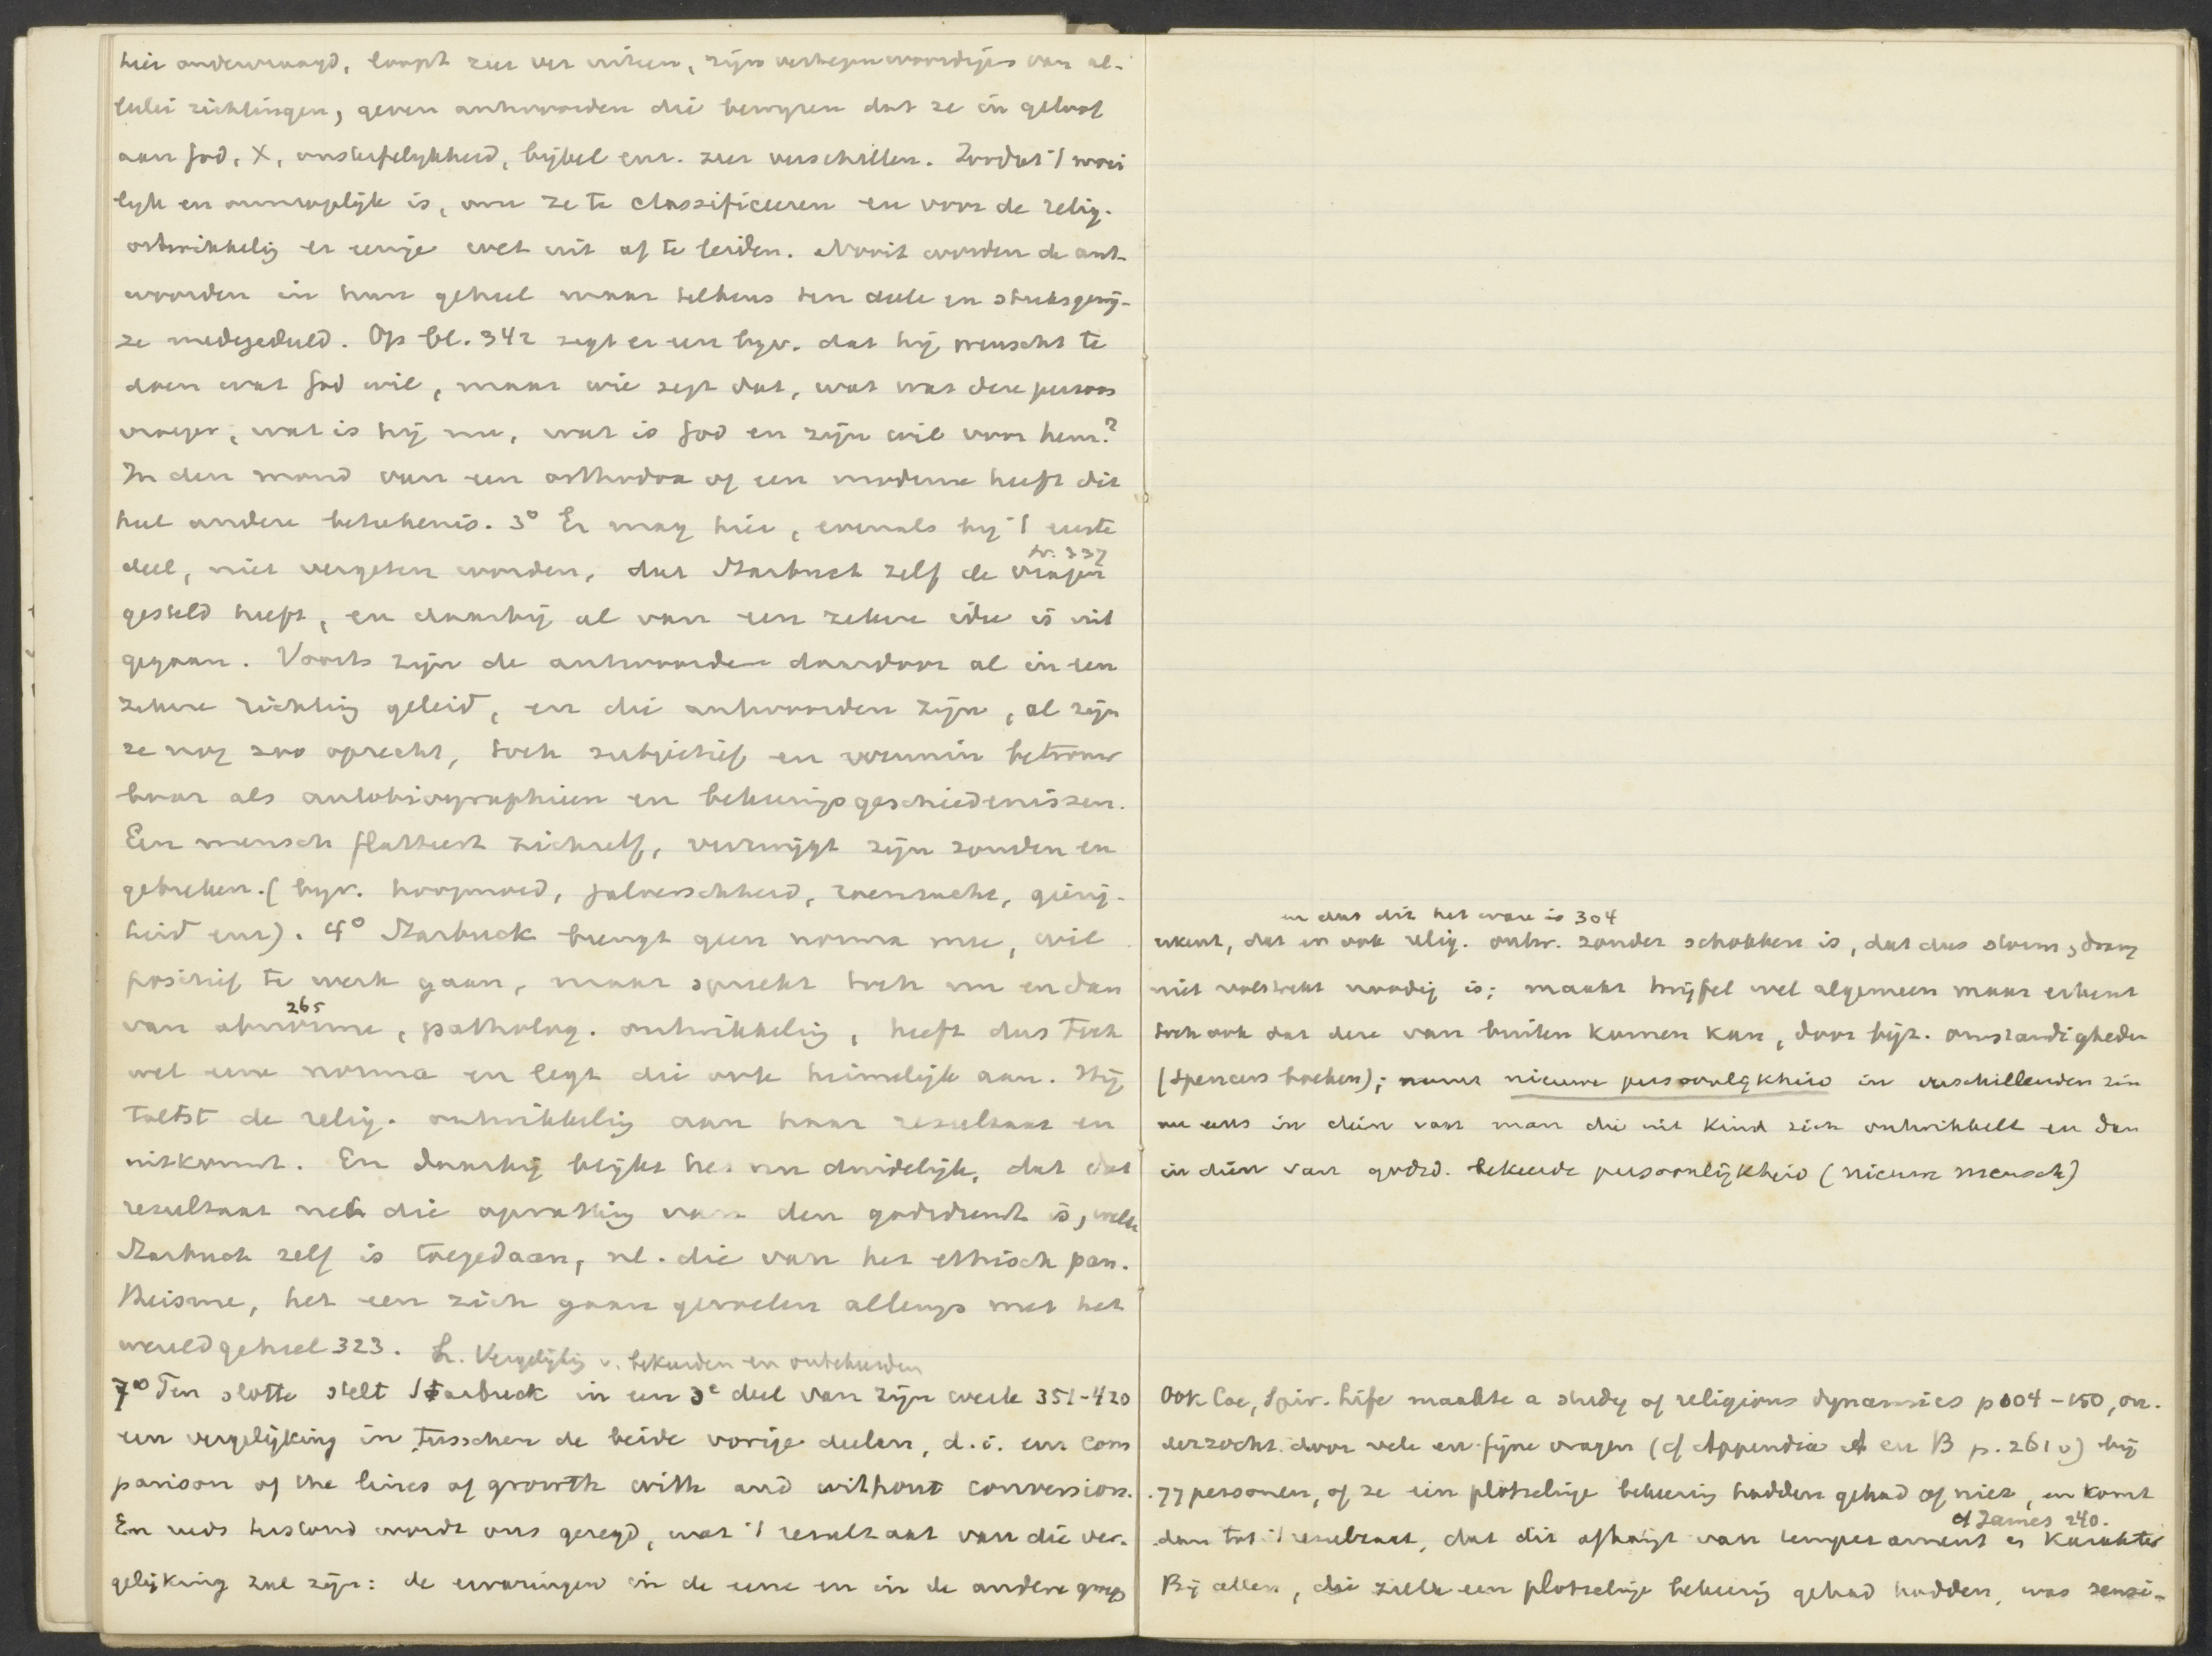 hier ondervraagd, loopt zeer ver uiteen, zijn vertegenwoordigers van al-
lerlei richtingen, geven antwoorden die bewyzen dat ze in geloof
aan God, X, onsterfelykheid, bijbel enz. zeer verschillen. Zoodat 't moei
lyk en onmogelijk is, om ze te classificeeren en voor de relig.
ontwikkelig er eenige wet uit af te leiden. Nooit worden de ant-
woorden in hun geheel maar telkens ten deele en stuksgewij-
ze medegedeeld. Op bl. 342 zegt er een byv. dat hij wenscht te
doen wat God wil, maar wie zegt dat, wat was deze persoon
vroeger, wat is hij nu, wat is God en zijn wil voor hem?
In den mond van een orthodox of een moderne heeft dit
heel andere beteekenis. 3° Er mag hier, evenals bij 't eerste
deel, niet vergeten worden, dat Starbuck zelf de vragen
gesteld heeft, en daarbij al van een zekere idee is uit
gegaan. Voorts zijn de antwoorden daardoor al in een
zekere richtig geleid, en die antwoorden zijn, al zijn
ze nog zoo oprecht, toch subjectief en evenmin betrouw
baar als autobiographieen en bekeeringsgeschiedenissen.
Een mensch flatteert zichzelf, verzwijgt zijn zonden en
gebreken. (byv. hoogmoed, jaloerschheid, roemzucht, gierig-
heid enz). 4° Starbuck brengt geen norma mee, wil
positief te werk gaan, maar spreekt toch nu en dan
265
van abnorme, patholog. ontwikkelig, heeft dus toch
wel eene norma en legt die ook heimelijk aan. Hij
toetst de relig. ontwikkelig aan haar resultaat en
uitkomst. En daarbij blijkt het nu duidelijk, dat dat
resultaat net die opvattig van den godsdienst is, welke
Starbuck zelf is toegedaan, nl. die van het ethisch pan.
theisme, het een zich gaan gevoelen allengs met het
wereldgeheel 323. h. Vergelijkig v. bekeerden en onbekeerden
7° Ten slotte stelt Starbuck in een 3e deel van zijn werk 351-420
een vergelijking in tusschen de beide vorige deelen, d.i. een com
parison of the lines of growth with and without conversion.
En reeds terstond wordt ons gezegd, wat 't resultaat van die ver.
gelijking zal zijn: de ervaringen in de eene en in de andere groep
en dat dit het ware is 304
erkent, dat er ook relig. ontw. zonder schokken is, dat dus storm & drang
niet volstrekt noodig is; maakt twijfel wel algemeen maar erkent
toch ook dat deze van buiten komen kan, door bijz. omstandigheden
(Spencers boeken); neemt nieuwe persoonlykheid in verschillenden zin
nu eens in dien van man die uit kind zich ontwikkelt en dan
in dien van godsd. bekeerde persoonlijkheid (nieuwe mensch)
Ook Coe, Spir. Life maakte a study of religious dynamics p 104-150, on.
derzocht door vele en fijne vragen (cf Appendix A en B p. 261 v) bij
77 personen, of ze een plotselinge bekeerig hadden gehad of niet, en komt
cf James 240.
dan tot 't resultaat, dat dit afhangt van temperament en karakter
Bij allen, die zulk een plotselinge bekeerig gehad hadden, was sensi-